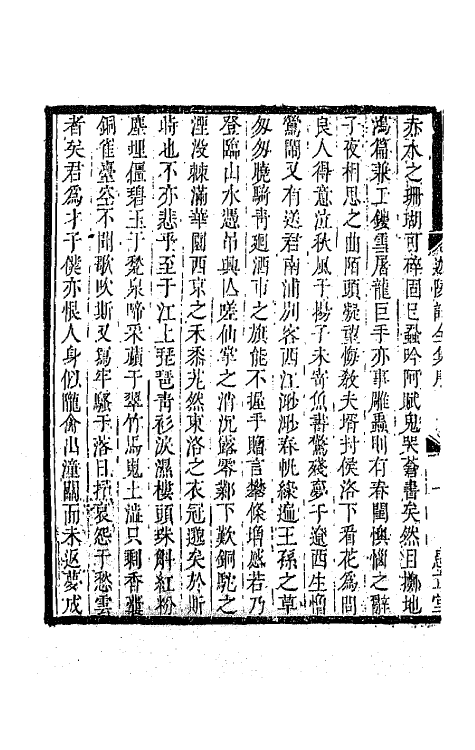 赤水之珊瑚可碎固已蟲吟阿賦鬼哭蒼書矣然且擲地
鴻篇兼工鏤雪屠龍巨手亦事雕蟲則有春閨懊惱之辭
子夜相思之曲陌頭凝望悔教夫壻封侯洛下看花為問
良人得意泣秋風于揚子未寄魚書驚殘夢于遼西生憎
鶯鬧又有送君南浦別客西江渺渺春帆綠遍王孫之草
匆匆曉騎靑迴酒市之旗能不握手贈言攀條增感若乃
登臨山水憑吊興亾嗟仙掌之消沉露零鄴下歎銅駝之
湮没棘滿華園西京之禾黍芃然東洛之衣冠邈矣於斯
時也不亦悲乎至于江上琵琶靑衫淚濕樓頭珠斛紅粉
塵埋僵碧玉于
泉啼采蘋于翠竹馬嵬土溢只剩香囊
銅雀臺空不聞歌吹斯又寫牢騷于落日招哀怨于愁雲
者矣君為才子僕亦恨人身似隴禽出潼關而未返夢成